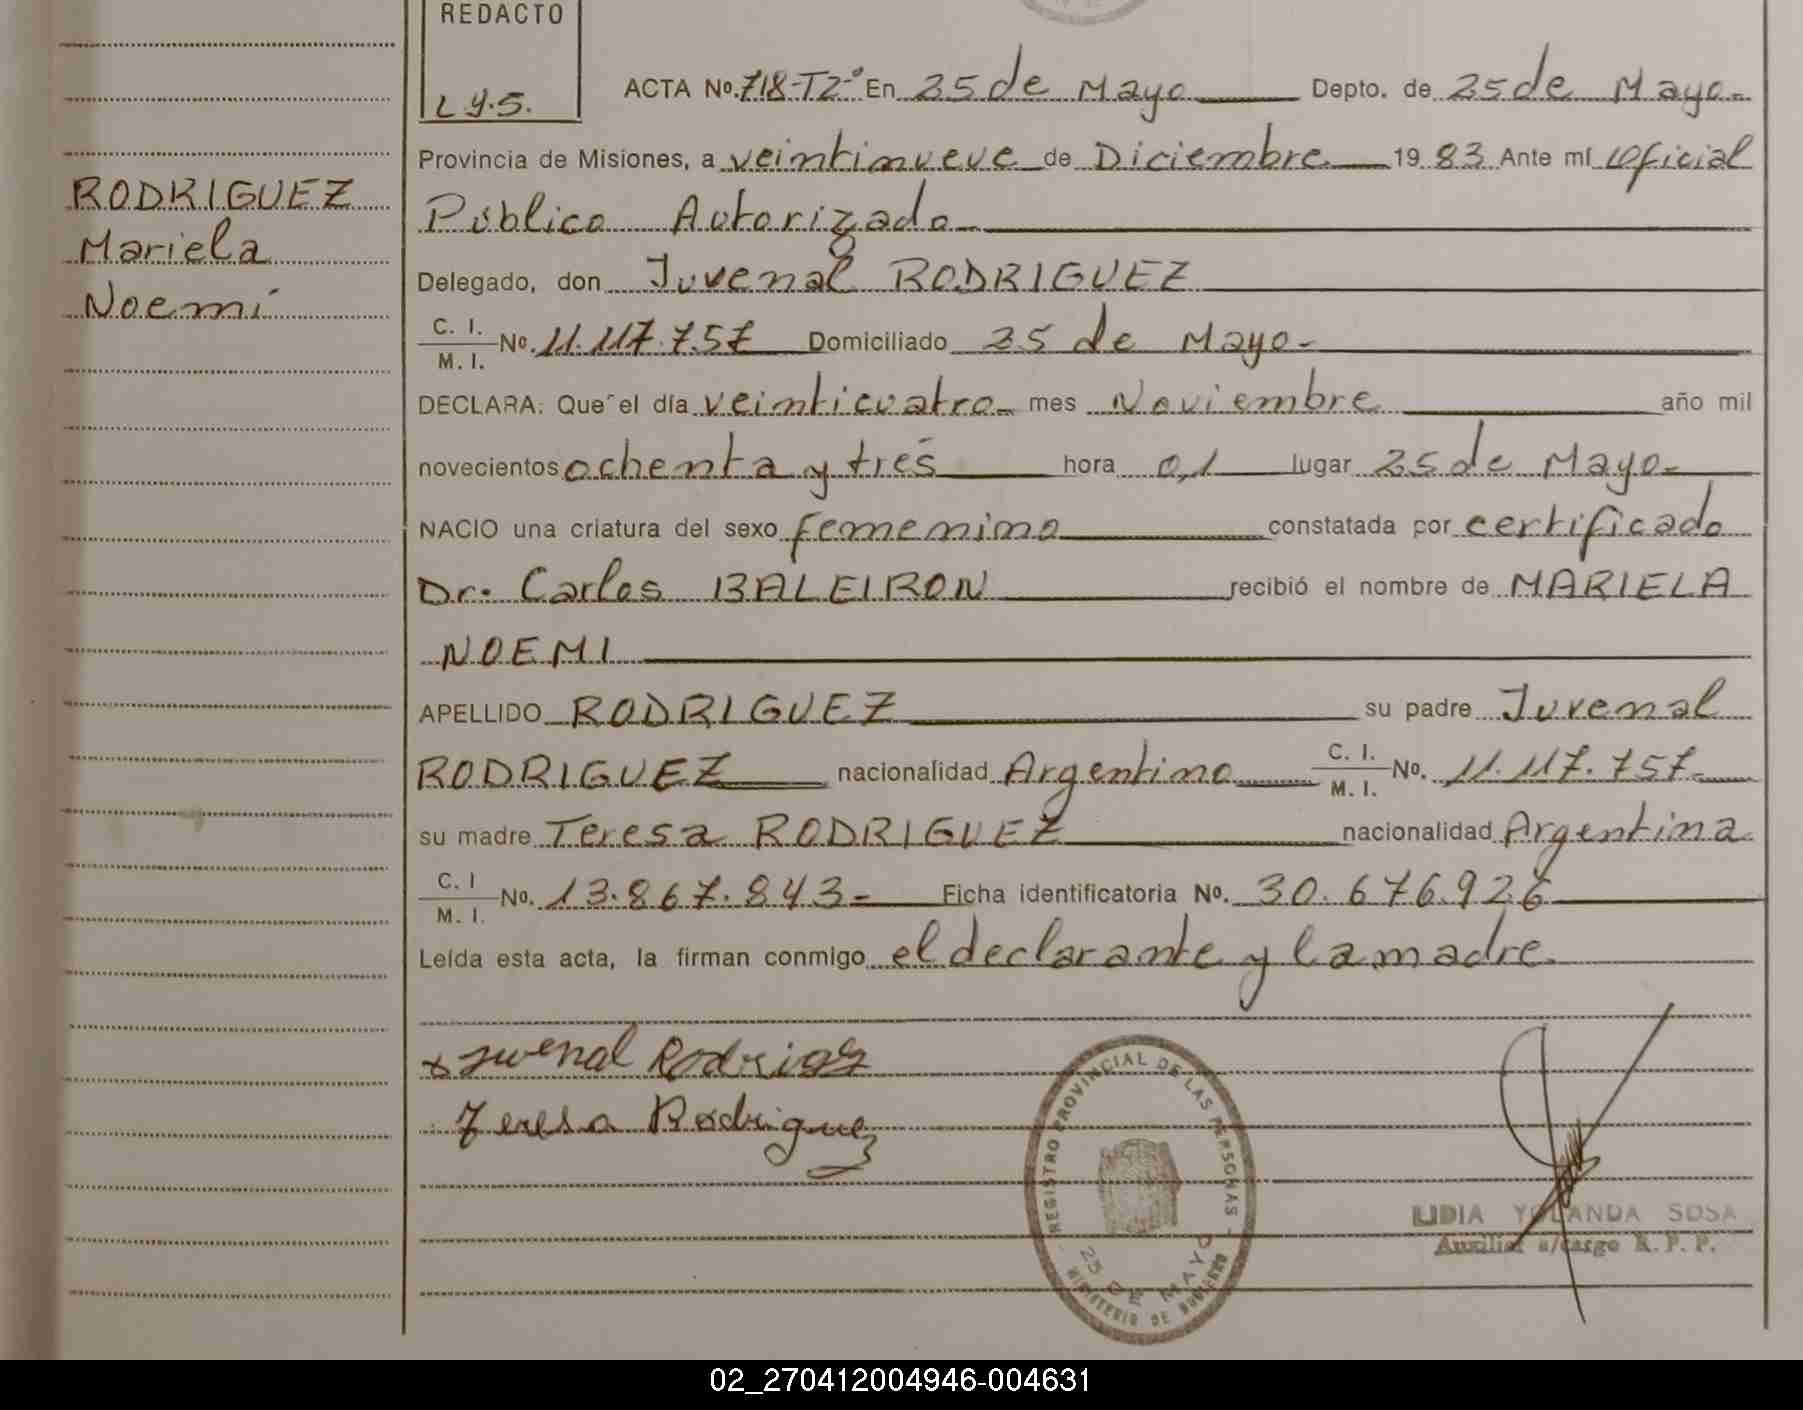 REDACTO
L.Y.S.
RODRIGUEZ
Mariela
Noemí
ACTA Nº. 718-T2-º En 25 de Mayo Depto. de 25 de Mayo-
Provincia de Misiones, a veintinueve de Diciembre 1983 Ante mí Oficial
Público Autorizado
Delegado, don Juvenal RODRIGUEZ
C. I.
M. I. Nº. 11.117.757 Domiciliado 25 de Mayo-
DECLARA: Que el día veinticuatro mes Noviembre año mil
novecientos ochenta y tres hora 0,1 lugar 25 de Mayo-
NACIO una criatura del sexo femenino constatada por certificado
Dr. Carlos BALEIRON recibió el nombre de MARIELA
NOEMI
APELLIDO RODRIGUEZ su padre Juvenal
RODRIGUEZ nacionalidad Argentino C. I.
M. I. Nº. 11.117.757-
su madre Teresa RODRIGUEZ nacionalidad Argentina
C. I
M. I. Nº. 13.867.843- Ficha identificatoria Nº. 30.676.926
Leída esta acta, la firman conmigo el declarante y la madre.
Juvenal
Teresa Rodriguez
REGISTRO PROVINCIAL DE LAS PERSONAS -
25 DE MAYO
MINISTERIO DE GOBIERNO
LIDIA YOLANDA SOSA
Auxiliar a/cargo R. P. P.
02_270412004946-004631